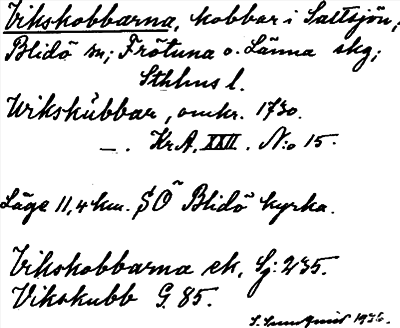 Vikskobbarna, kobbar i Saltsjön,
Blidö sn; Frötuna o. Länna skg;
Sthlms l.
Wikskŭbbar, omkr. 1730.
—. Kr.A. XXII. N:o 15.
Läge 11,4 km. SÖ Blidö kyrka.
Vikskobbarna ek. Sj: 235.
Vikskubb G. 85.
1936.